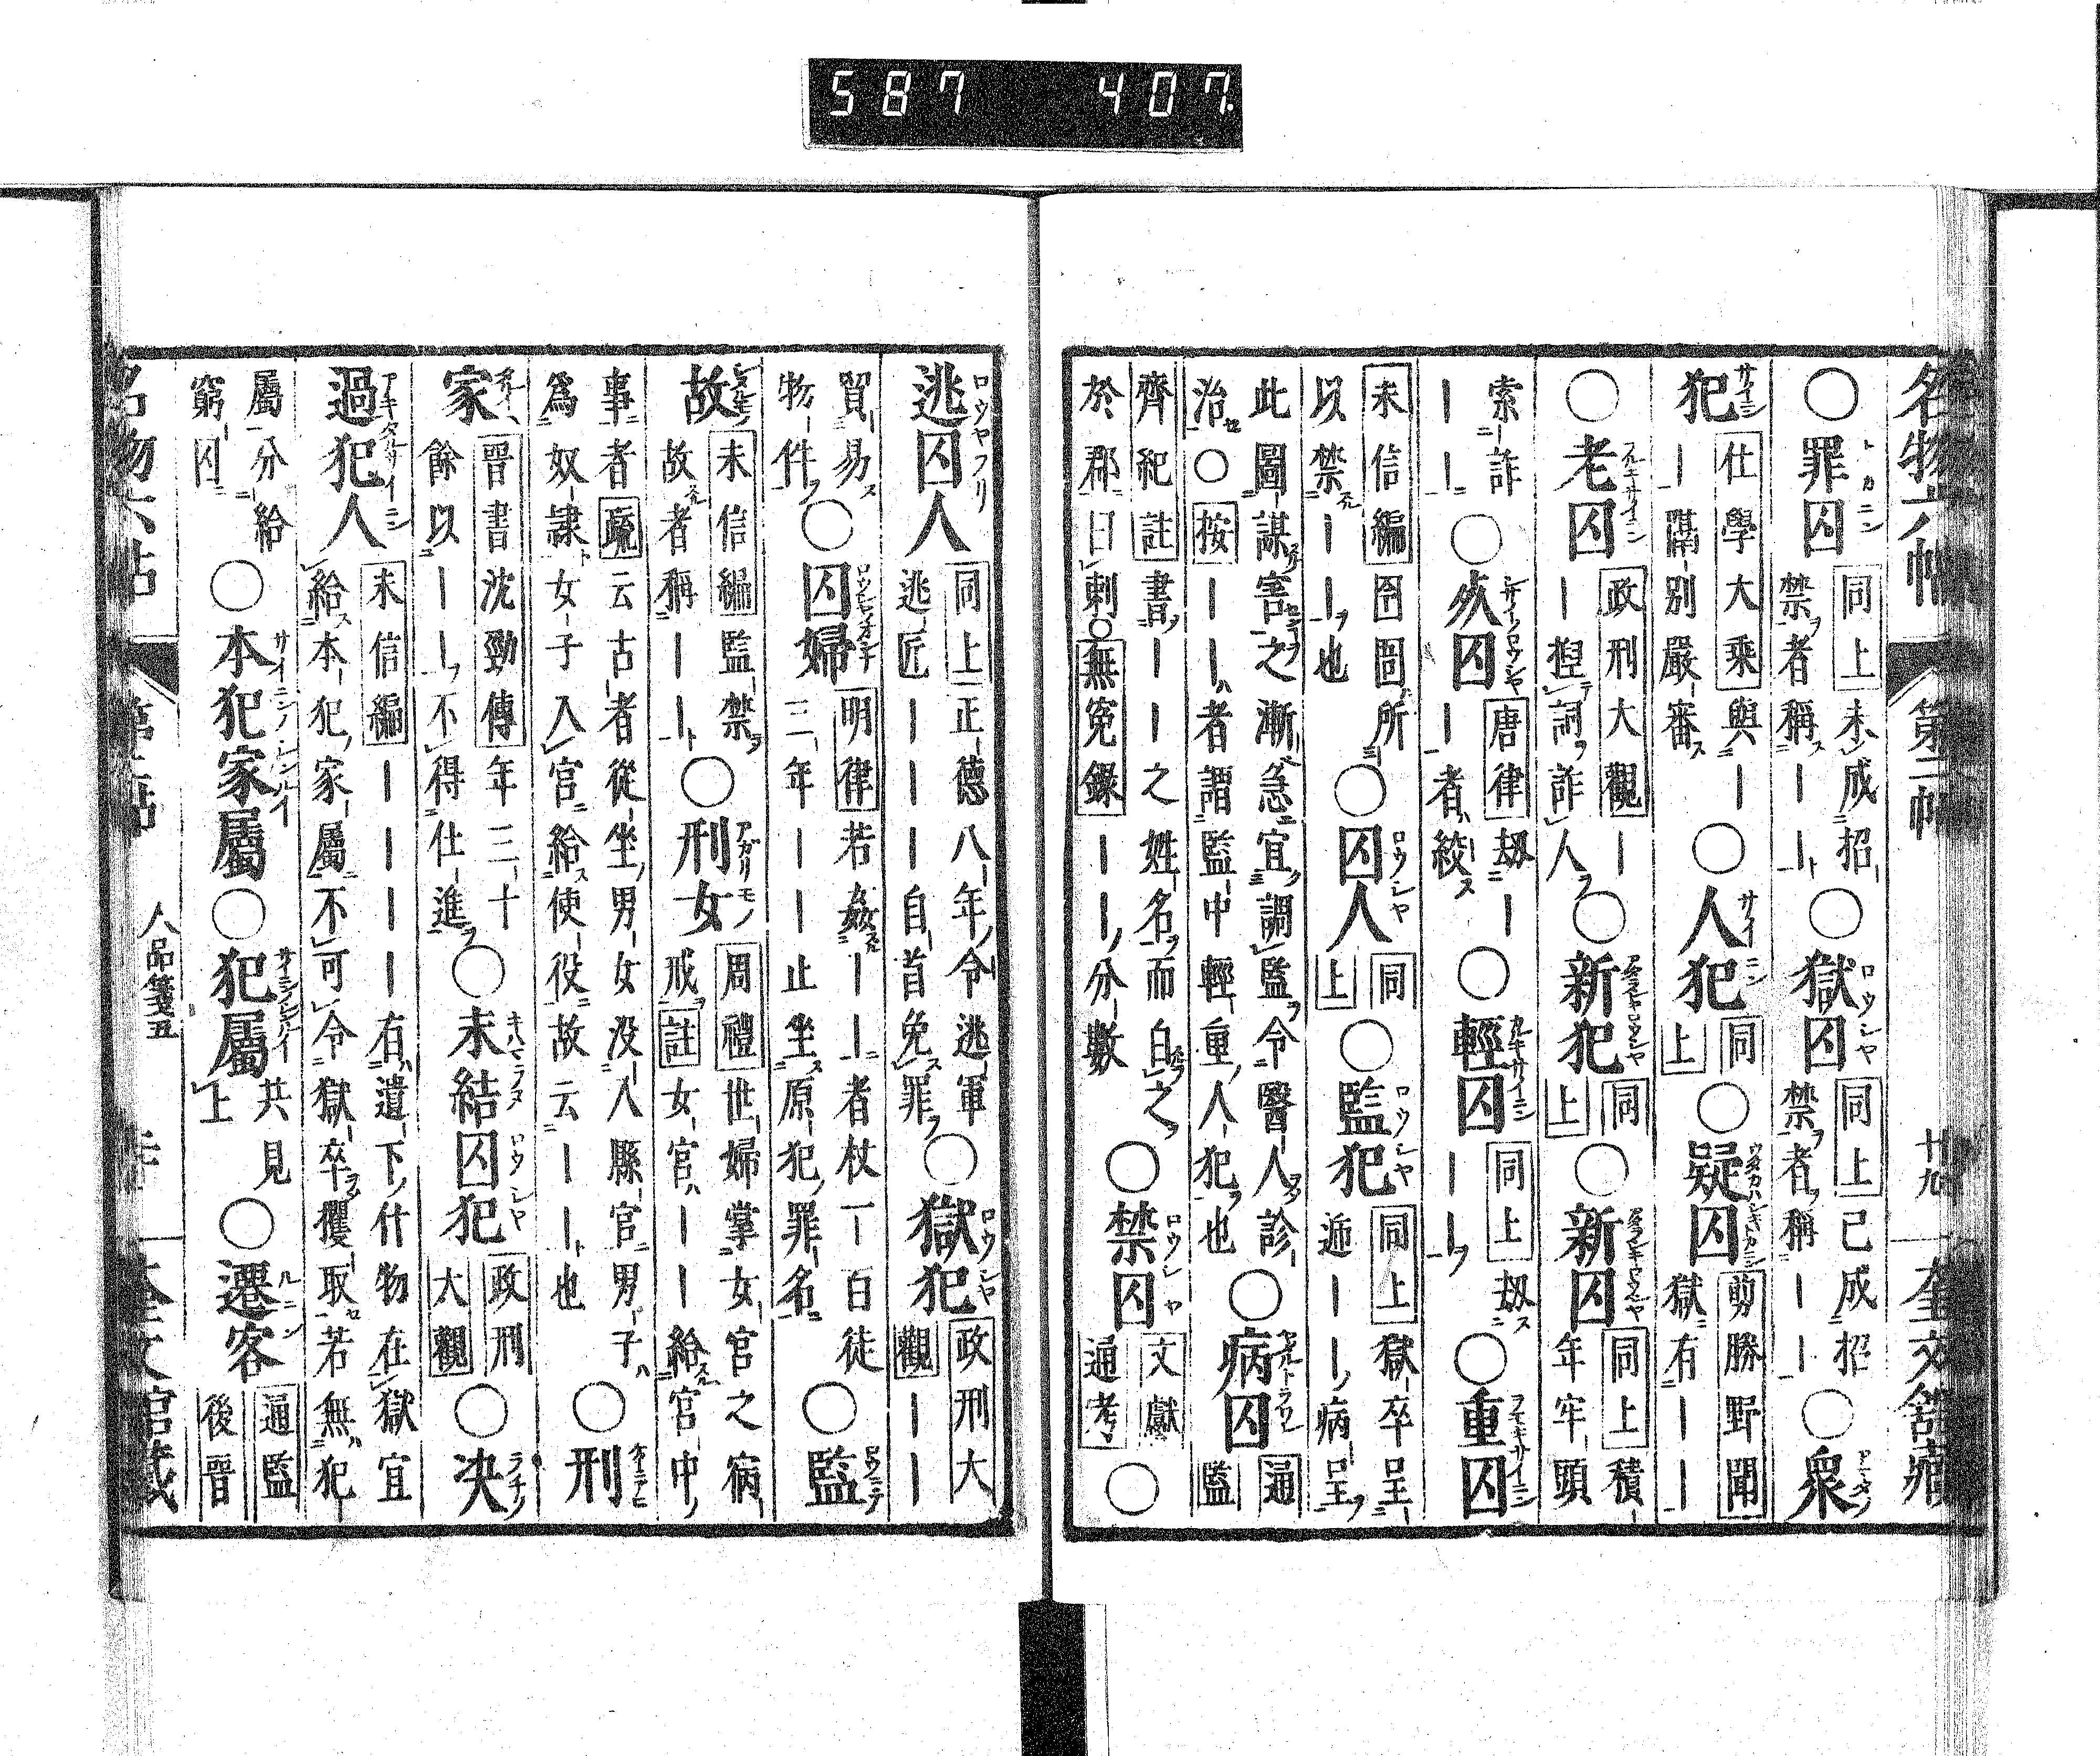 587 407.
名物六帖 第二帖 廿九 奎文舘藏
○罪囚 トカニン 同上 未成招 禁者稱——○獄囚 ロウシヤ 同上 已成招 禁者稱——○衆
犯 仕學大乘 與— —隔別嚴審○人犯 サイニン 同上○疑囚 剪勝野聞 獄有——
○老囚 フルキサイニン 政刑大觀 — —猾訶詐人○新犯 同上○新囚 同上 積年牢頭
索詐 ——○疚囚 唐律 刼— —者絞○輕囚 カルキサイニン 同上 刼 ——○重囚 ヲモキサイニン
未信編 囹圄所 以禁——也○囚人 ロウシヤ 同上○監犯 ロウシヤ 同上 獄卒呈 逓——病呈
此圖謀害之漸急宜調監令醫人診 治○按——者謂監中輕重人犯也○病囚 通監
齊紀註 書——之姓名而白之 於郡曰刺○無冤錄——分數○禁囚 ロウシヤ 文獻通考○
逃囚人 ロウヤフリ 同上 正德八年令逃軍 逃匠———自首免罪○獄犯 ロウシヤ 政刑大觀——
貿易 物件○囚婦 明律 若姦——者杖一百徒 三年——止坐原犯罪名○監
故 未信編 監禁 故者稱——○刑女 アガリモノ 周禮 世婦掌女官之病 戒註 女官——給官中
事者疏 云古者從坐男女没入縣官男子 爲奴隷女子入官給使役故云——也○刑
家 晉書沈勁傳 年三十 餘以——不得仕進○未結囚犯 政刑大觀○决
過犯人 未信編 ———有遺下什物在獄宜 給本犯家屬不可令獄卒攫取若無犯
屬分給 窮囚○本犯家屬○犯屬 共見上○遷客 ルニン 通監後晉
名物六帖 第二帖 人品箋五 奎文舘藏